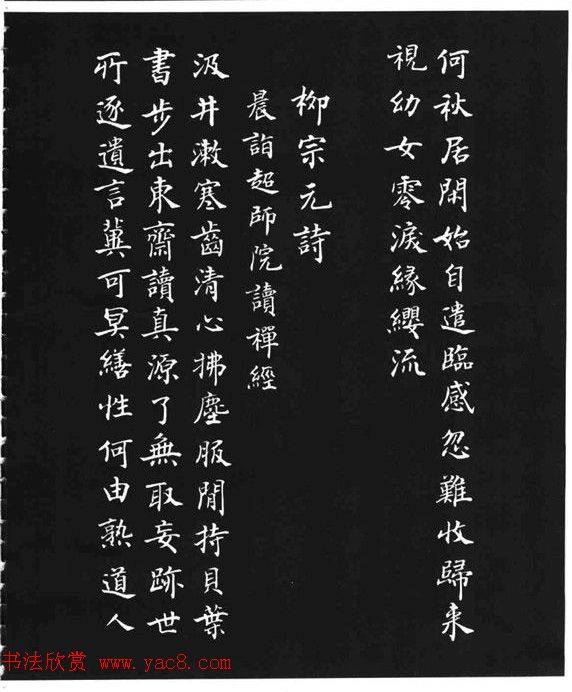 何秋居閑始自遣臨感忽難收歸来
視幼女零淚緣纓流
柳宗元詩
晨詣超師院讀禪經
汲井漱寒齒清心拂塵服閒持貝葉
書步出東齋讀真源了無取妄跡世
所逐遺言冀可冥繕性何由熟道人
书法欣赏 www.yac8.com